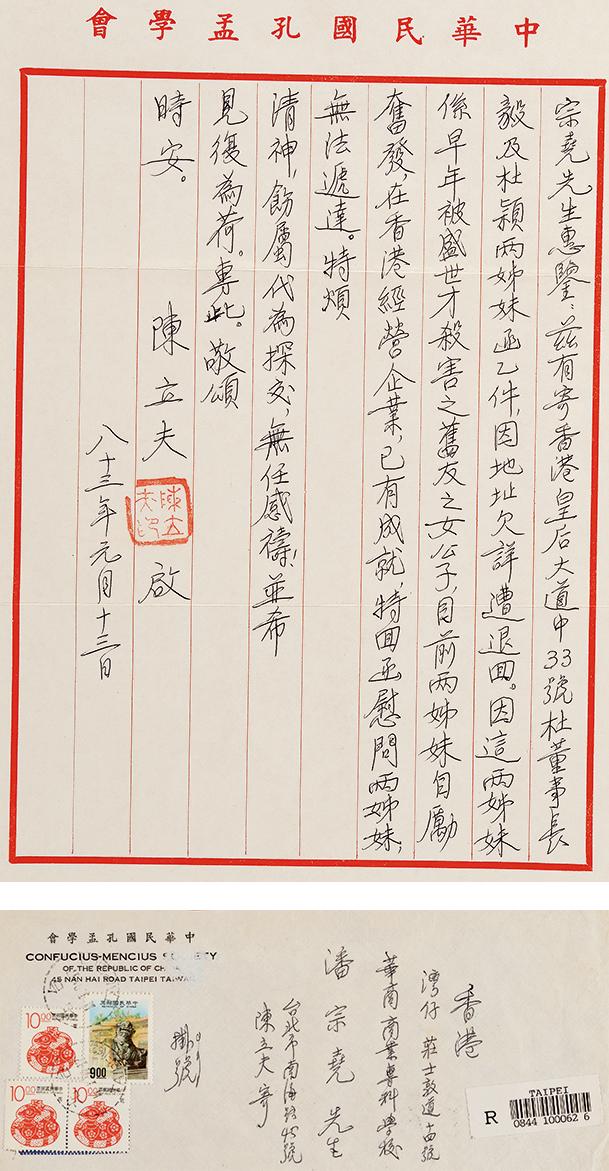 中華民國孔孟學會
宗堯先生惠鑒：茲有寄香港皇后大道中33號杜董事長
毅及杜穎兩姊妹函乙件，因地址欠詳遭退回。因這兩姊妹
係早年被盛世才殺害之舊友之女公子，目前兩姊妹自勵
奮發，在香港經營企業，已有成就，特回函慰問兩姊妹，
無法遞達。特煩
清神，飭屬代為探交，無任感禱，並希
見復為荷。專此。敬頌
時安。
陳立夫 啟
陳立夫印
八十三年元月十三日
中華民國孔孟學會
CONFUCIUS-MENCIUS S
OF THE REPUBLIC OF CH
45 NAN HAI ROAD TAIPEI TAIWA
香港
灣仔 莊士敦道
華南商業專科學校
潘宗堯先生
台北市南海路45號
陳立夫寄
掛號
10.00
中華民國郵票
9.00
10.00
10.00
R
TAIPEI
0844 100062 6